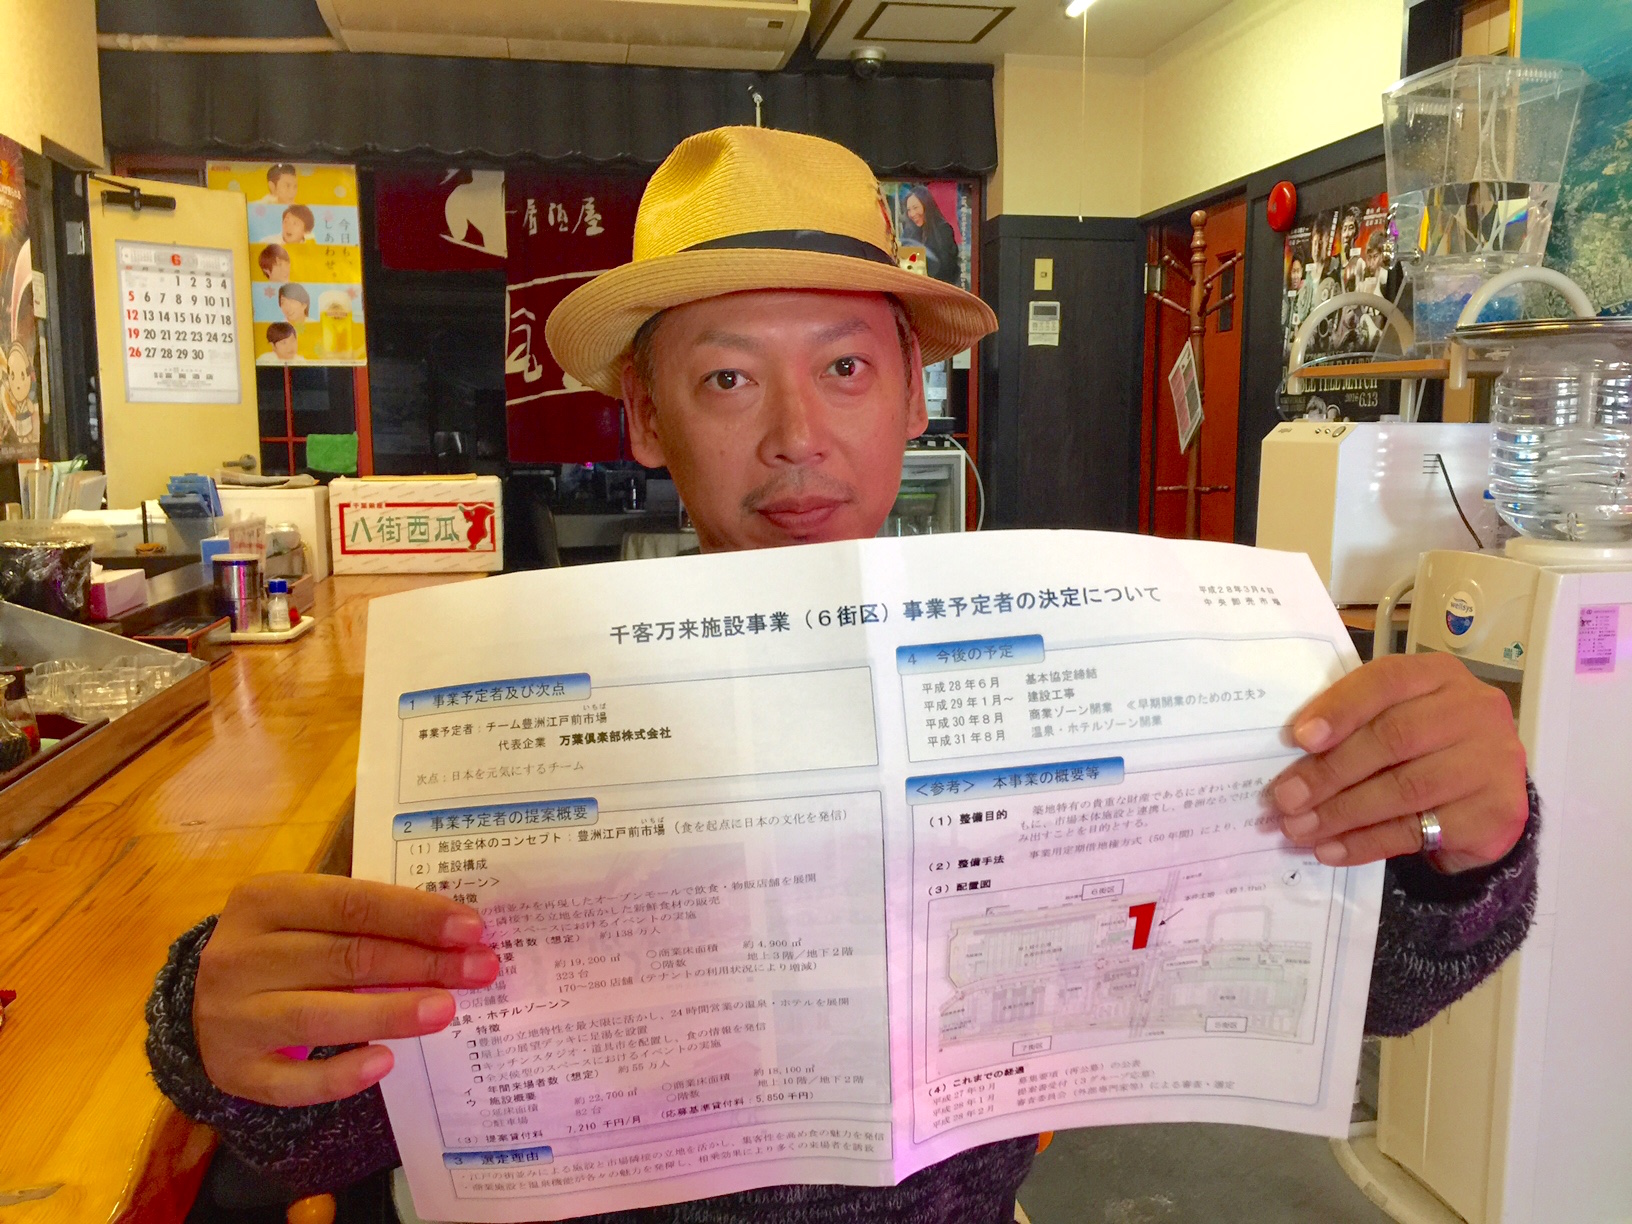 今日も、
しあわせ。
6
1 2 3 4
5 6 7 8 9 10 11
12 13 14 15 16 17 18
19 20 21 22 23 24 25
26 27 28 29 30
居酒屋
八街西瓜
2016 6.13
wellsys
平成28年3月4日
中央卸売市場
千客万来施設事業（6街区）事業予定者の決定について
1 事業予定者及び次点
いちば
事業予定者：チーム豊洲江戸前市場
代表企業 万葉倶楽部株式会社
次点：日本を元気にするチーム
2 事業予定者の提案概要
いちば
（1）施設全体のコンセプト：豊洲江戸前市場（食を起点に日本の文化を発信）
（2）施設構成
＜商業ゾーン＞
特徴
の街並みを再現したオープンモールで飲食・物販店舗を展開
に隣接する立地を活かした新鮮食材の販売
プンスペースにおけるイベントの実施
来場者数（想定） 約138万人
概要
面積 約19,200㎡ ○商業床面積 約4,900㎡
駐車場 323台 ○階数 地上3階／地下2階
○店舗数 170～280店舗（テナントの利用状況により増減）
温泉・ホテルゾーン＞
ア 特徴
豊洲の立地特性を最大限に活かし、24時間営業の温泉・ホテルを展開
屋上の展望デッキに足湯を設置
キッチンスタジオ・道具市を配置し、食の情報を発信
全天候型のスペースにおけるイベントの実施
イ 年間来場者数（想定） 約55万人
ウ 施設概要
○延床面積 約22,700㎡ ○商業床面積 約18,100㎡
○駐車場 82台 ○階数 地上10階／地下2階
（3）提案貸付料 7,210千円／月 （応募基準貸付料：5,850千円）
3 選定理由
・江戸の街並みによる施設と市場隣接の立地を活かし、集客性を高め食の魅力を発信
・商業施設と温泉機能が各々の魅力を発揮し、相乗効果により多くの来場者を誘致
4 今後の予定
平成28年6月 基本協定締結
平成29年1月～ 建設工事
平成30年8月 商業ゾーン開業 ≪早期開業のための工夫≫
平成31年8月 温泉・ホテルゾーン開業
＜参考＞ 本事業の概要等
（1）整備目的 築地特有の貴重な財産であるにぎわいを継承・
もに、市場本体施設と連携し、豊洲ならではの
み出すことを目的とする。
（2）整備手法 事業用定期借地権方式（50年間）により、民設民
（3）配置図
6街区
5街区
7街区
（4）これまでの経過
平成27年9月 募集要項（再公募）の公表
平成28年1月 提案書受付（3グループ応募）
平成28年2月 審査委員会（外部専門家等）による審査・選定